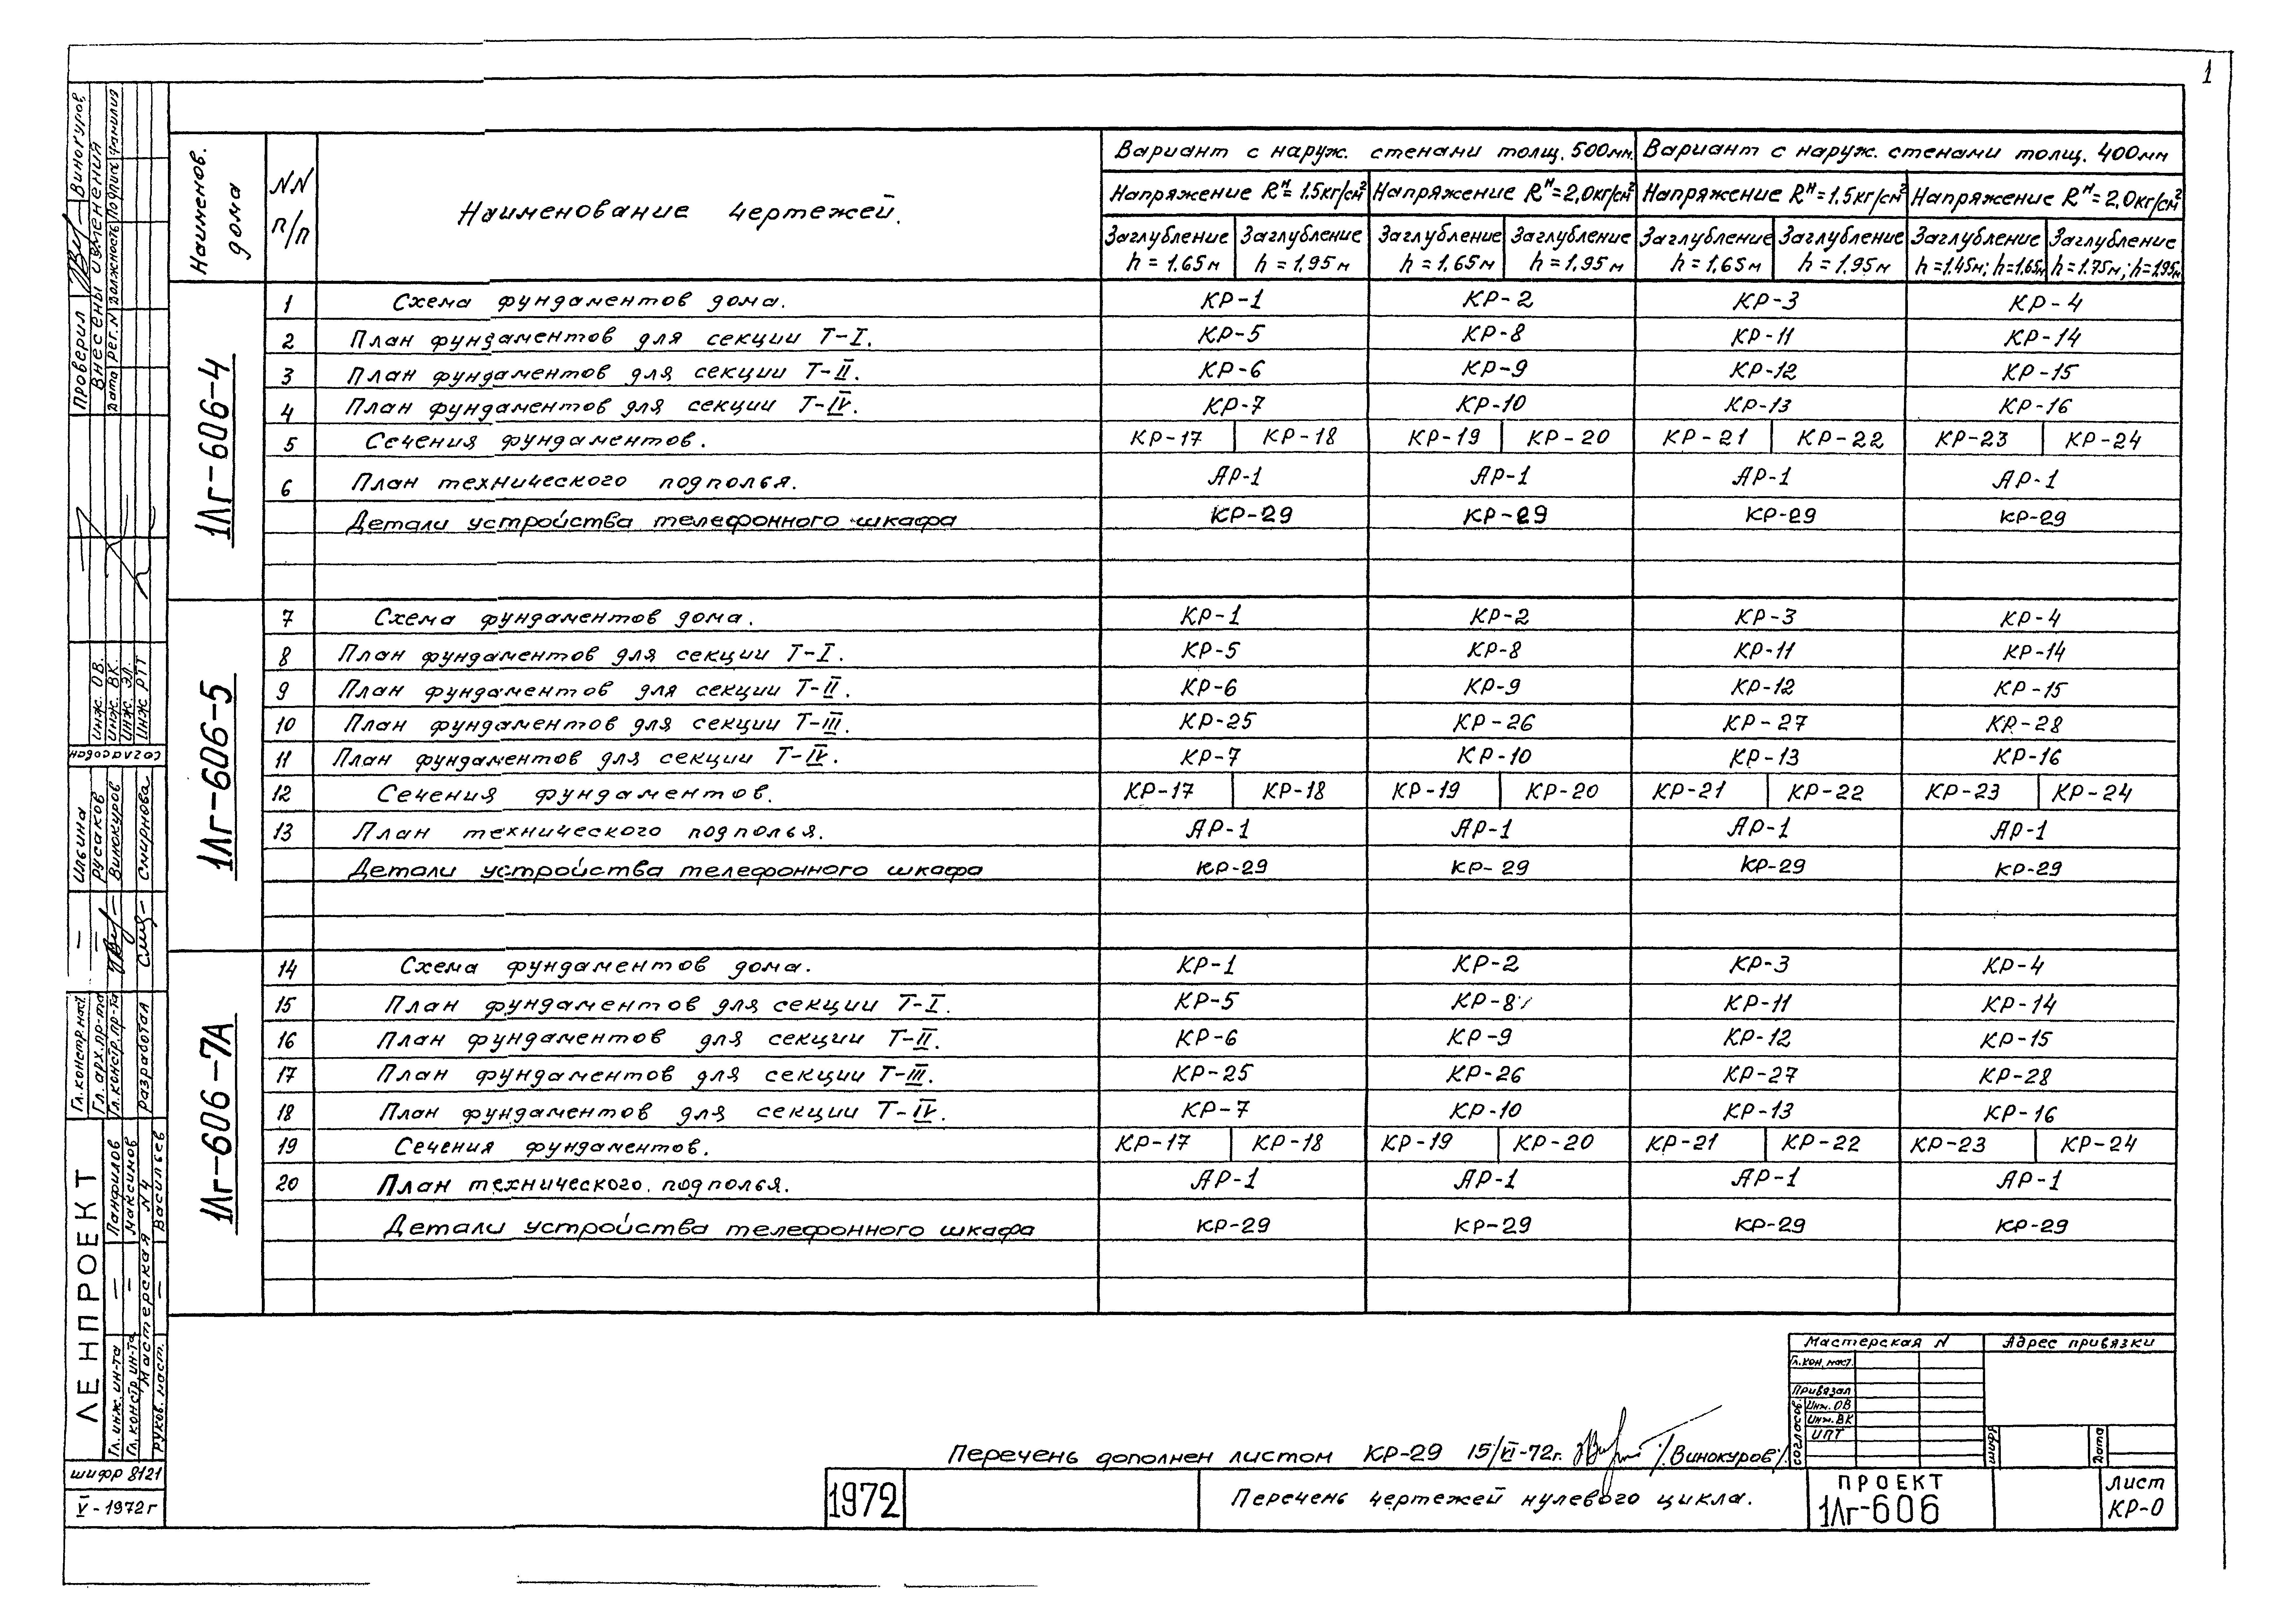 1
Наименов. дома
NN п/п
Наименование чертежей.
Вариант с наруж. стенами толщ. 500мм.
Вариант с наруж. стенами толщ. 400мм
Напряжение Rᴴ= 1.5кг/см²
Напряжение Rᴴ=2,0кг/см²
Напряжение Rᴴ=1.5кг/см²
Напряжение Rᴴ=2,0кг/см²
Заглубление h = 1.65м
Заглубление h = 1,95м
Заглубление h = 1,65м
Заглубление h = 1,95м
Заглубление h = 1,65м
Заглубление h = 1,95м
Заглубление h=1.45м; h=1.65м
Заглубление h=1.75м; h=1.95м
1Лг-606-4
1 Схема фундаментов дома. КР-1 КР-2 КР-3 КР-4
2 План фундаментов для секции Т-I. КР-5 КР-8 КР-11 КР-14
3 План фундаментов для секции Т-II. КР-6 КР-9 КР-12 КР-15
4 План фундаментов для секции Т-IV. КР-7 КР-10 КР-13 КР-16
5 Сечения фундаментов. КР-17 КР-18 КР-19 КР-20 КР-21 КР-22 КР-23 КР-24
6 План технического подполья. АР-1 АР-1 АР-1 АР-1
Детали устройства телефонного шкафа КР-29 КР-29 КР-29 КР-29
1Лг-606-5
7 Схема фундаментов дома. КР-1 КР-2 КР-3 КР-4
8 План фундаментов для секции Т-I. КР-5 КР-8 КР-11 КР-14
9 План фундаментов для секции Т-II. КР-6 КР-9 КР-12 КР-15
10 План фундаментов для секции Т-III. КР-25 КР-26 КР-27 КР-28
11 План фундаментов для секции Т-IV. КР-7 КР-10 КР-13 КР-16
12 Сечения фундаментов. КР-17 КР-18 КР-19 КР-20 КР-21 КР-22 КР-23 КР-24
13 План технического подполья. АР-1 АР-1 АР-1 АР-1
Детали устройства телефонного шкафа КР-29 КР-29 КР-29 КР-29
1Лг-606-7А
14 Схема фундаментов дома. КР-1 КР-2 КР-3 КР-4
15 План фундаментов для секции Т-I. КР-5 КР-8 КР-11 КР-14
16 План фундаментов для секции Т-II. КР-6 КР-9 КР-12 КР-15
17 План фундаментов для секции Т-III. КР-25 КР-26 КР-27 КР-28
18 План фундаментов для секции Т-IV. КР-7 КР-10 КР-13 КР-16
19 Сечения фундаментов. КР-17 КР-18 КР-19 КР-20 КР-21 КР-22 КР-23 КР-24
20 План технического подполья. АР-1 АР-1 АР-1 АР-1
Детали устройства телефонного шкафа КР-29 КР-29 КР-29 КР-29
Перечень дополнен листом КР-29 15/VI-72г. /Винокуров/.
1972
Перечень чертежей нулевого цикла.
Мастерская N
Адрес привязки
Гл.кон.маст.
Привязал
согласов.
Инж. ОВ
Инж. ВК
ИПТ
шифр
Дата
ПРОЕКТ
1Лг-606
Лист
КР-0
Проверил Виногуров
Внесены изменения
Дата рег.N Должность Подпись Фамилия
инж. ОВ.
инж. ВК.
инж. ЭЛ.
инж РТТ
согласован
Гл.констр.маст. — Ильина
Гл.арх.пр-та — Русаков
Гл.констр.пр-та Винокуров
Разработал Смирнова
ЛЕНПРОЕКТ
Гл.инж.ин-та — Панфилов
Гл.констр.ин-та — Максимов
Мастерская N4
Руков.маст. — Васильев
шифр 8121
V - 1972г